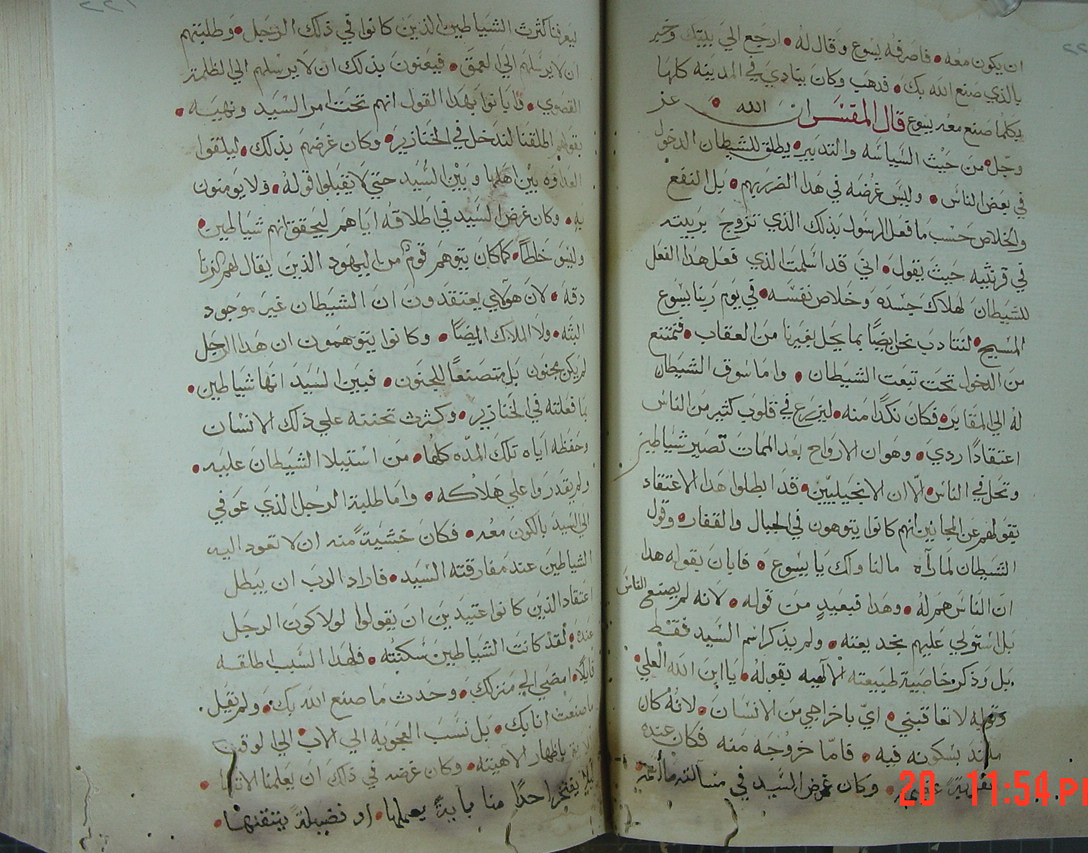 ان يكون معه • فاصرفه يسوع وقال له • ارجع الي بيتك وخبر
بالذي صنع الله بك • فذهب وكان ينادي في المدينه كلها
بكلما صنع معه يسوع قال المفسر ان الله عز
وجل • من حيث السياسه والتدبير • يطلق للشيطان الدخول
في بعض الناس • وليس غرضه في هذا الضرر بهم • بل النفع
والخلاص حسب ما فعل الرسول بذلك الذي تزوج بربيته
في قرنتيه حيث يقول • اني قد اسلمت الذي فعل هذا الفعل
للشيطان لهلاك جسده وخلاص نفسه • في يوم ربنا يسوع
المسيح • لنتادب نحن ايضًا بما يحل بغيرنا من العقاب • فنمتنع
من الدخول تحت تبعت الشيطان • واما سوق الشيطان
له الي المقابر • فكان نكدًا منه • ليزرع في قلوب كثير من الناس
اعتقادًا ردي • وهو ان الارواح بعد الممات تصير شياطين
وتحل في الناس • الّا ان الانجيليين • قد ابطلوا هذا الاعتقاد
بقولهم عن المجانين انهم كانوا يتوهون في الجبال والقفار • وقول
الشيطان لما رآه مالنا ولك يا يسوع • فابان بقوله هذا
ان الناس هم له • وهذا فبعيد من قوله • لانه لم يصنع الناس
بل استولي عليهم بخديعته • ولم يذكر اسم السيد فقط
بل وذكر خاصية طبيعته الالهيه بقوله • يا ابن الله العلي
وقوله لا تعاقبني • اي باخراجي من الانسان • لانه كان
ملتذ بسكونه فيه • فامّا خروجه منه فكان عنده
عقوبة • وكان غرض السيد في مسالته ما
ليعرفنا كثرت الشياطين الذين كانوا في ذلك الرجل • وطلبتهم
ان لا يرسلهم الي العمق • فيعنون بذلك ان لا يرسلهم الي الظلمة
القصوي • فابانوا بهذا القول انهم تحت امر السيد ونهيه •
بقولهم اطلقنا لندخل في الخنازير • وكان غرضهم بذلك • ليلقوا
العداوه بين اهلها وبين السيد حتي لا يقبلوا قوله • فلا يومنون
به • وكان غرض السيد في اطلاقه اياهم ليحقق انهم شياطين •
وليس خلطاً • كما كان يتوهم قومٌ من اليهود الذين يقال لهم الزنا
دقه • لان هولاي يعتقدون ان الشيطان غير موجود
البته • ولا الملاك ايضًا • وكانوا يتوهمون ان هذا الرجل
لم يكن مجنون بل متصنعًا للجنون • فبين السيد انها شياطين •
بما فعلته في الخنازير • وكثرت تحننه علي ذلك الانسان
وحفظه اياه تلك المده كلها • من استيلا الشيطان عليه •
ولم يقدروا علي هلاكه • واما طلبة الرجل الذي عوفي
الي السيد بالكون معه • فكان خشيةً منه ان لا تعود اليه
الشياطين عند مفارقته السيد • فاراد الرب ان يبطل
اعتقاد الذين كانوا عتيدين ان يقولوا لولا كون الرجل
عنده • لقد كانت الشياطين سكنته • فلهذا السبب اطلقه
قايلًا • امضي الي منزلك • وحدث ما صنع الله بك • ولم يقل
ما صنعت انا بك • بل نسب العجوبه الي الاب • الي الوقت
باظهار لاهيته • وكان غرضه في ذلك ان يعلمنا الا
يفتخر احدًا منا باية يعملها • او فضيلة يتقنها •